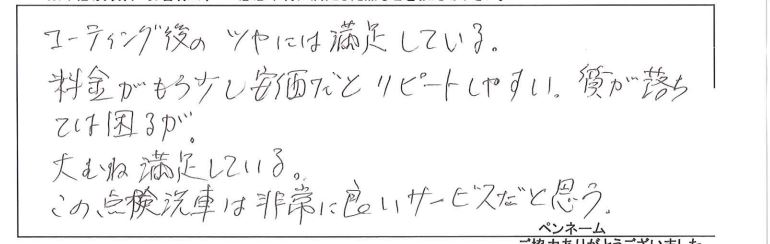 コーティング後の ツヤには満足している。
料金がもう少し安価だとリピートしやすい。質が落ち
ては困るが。
大むね満足している。
この点検洗車は非常に良いサービスだと思う。
ペンネーム
ご協力ありがとうございました